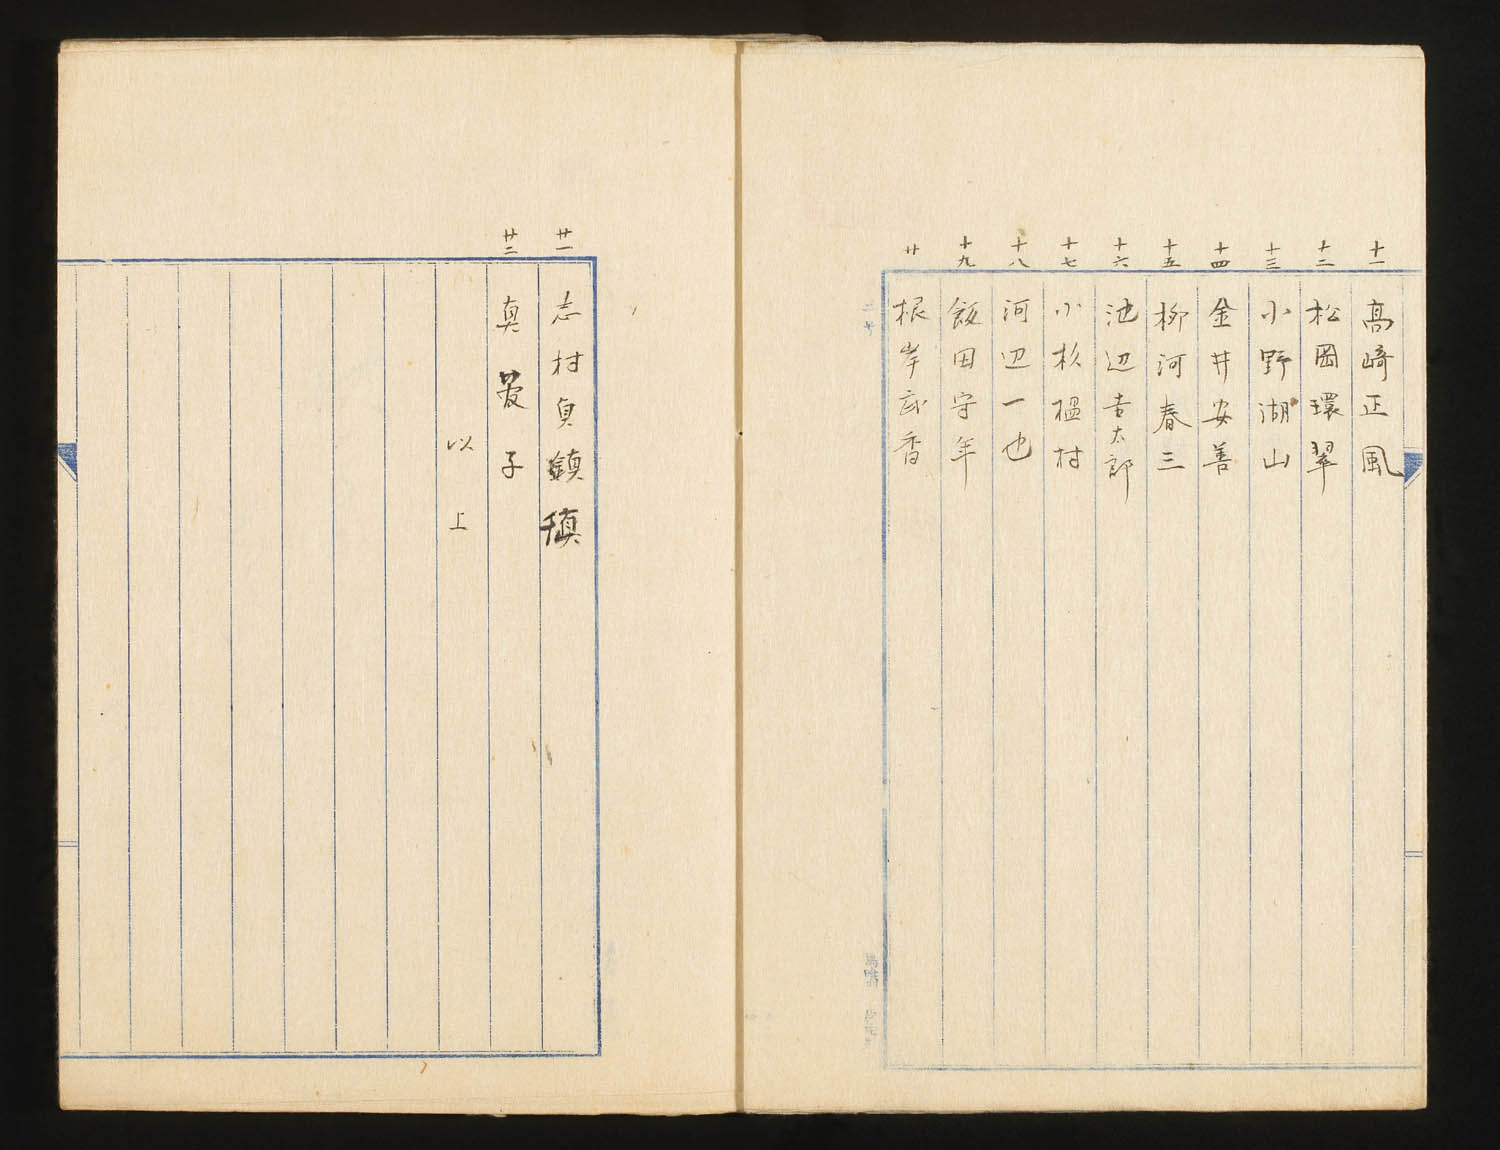 十一 高崎正風
十二 松岡環翠
十三 小野湖山
十四 金井安善
十五 柳河春三
十六 池辺吉太郎
十七 小杉榲村
十八 河辺一也
十九 飯田守年
廿 根岸武香
廿一 志村貞鎮
廿二 真菱子
以上